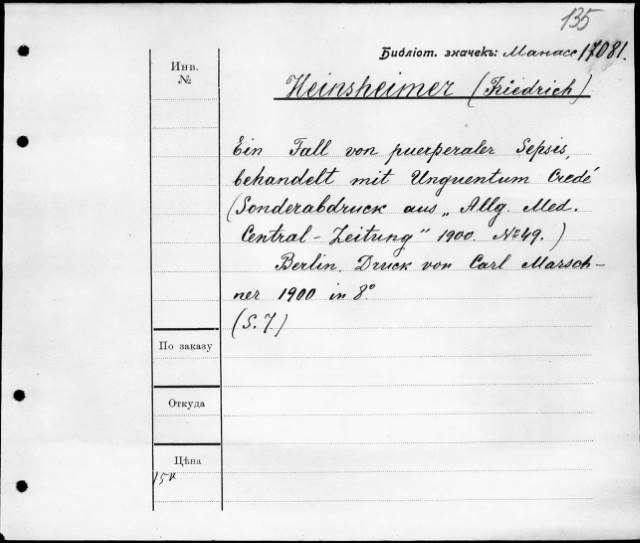 135
Библіот. значекъ: Манасс 17081.
Инв.
№
Heinsheimer (Friedrich)
Ein Fall von puerperaler Sepsis,
behandelt mit Unguentum Credé
(Sonderabdruck aus „Allg. Med.
Central-Zeitung" 1900. №49.)
Berlin. Druck von Carl Marsch-
ner 1900 in 8°.
(S. 7.)
По заказу
Откуда
Цѣна
15к